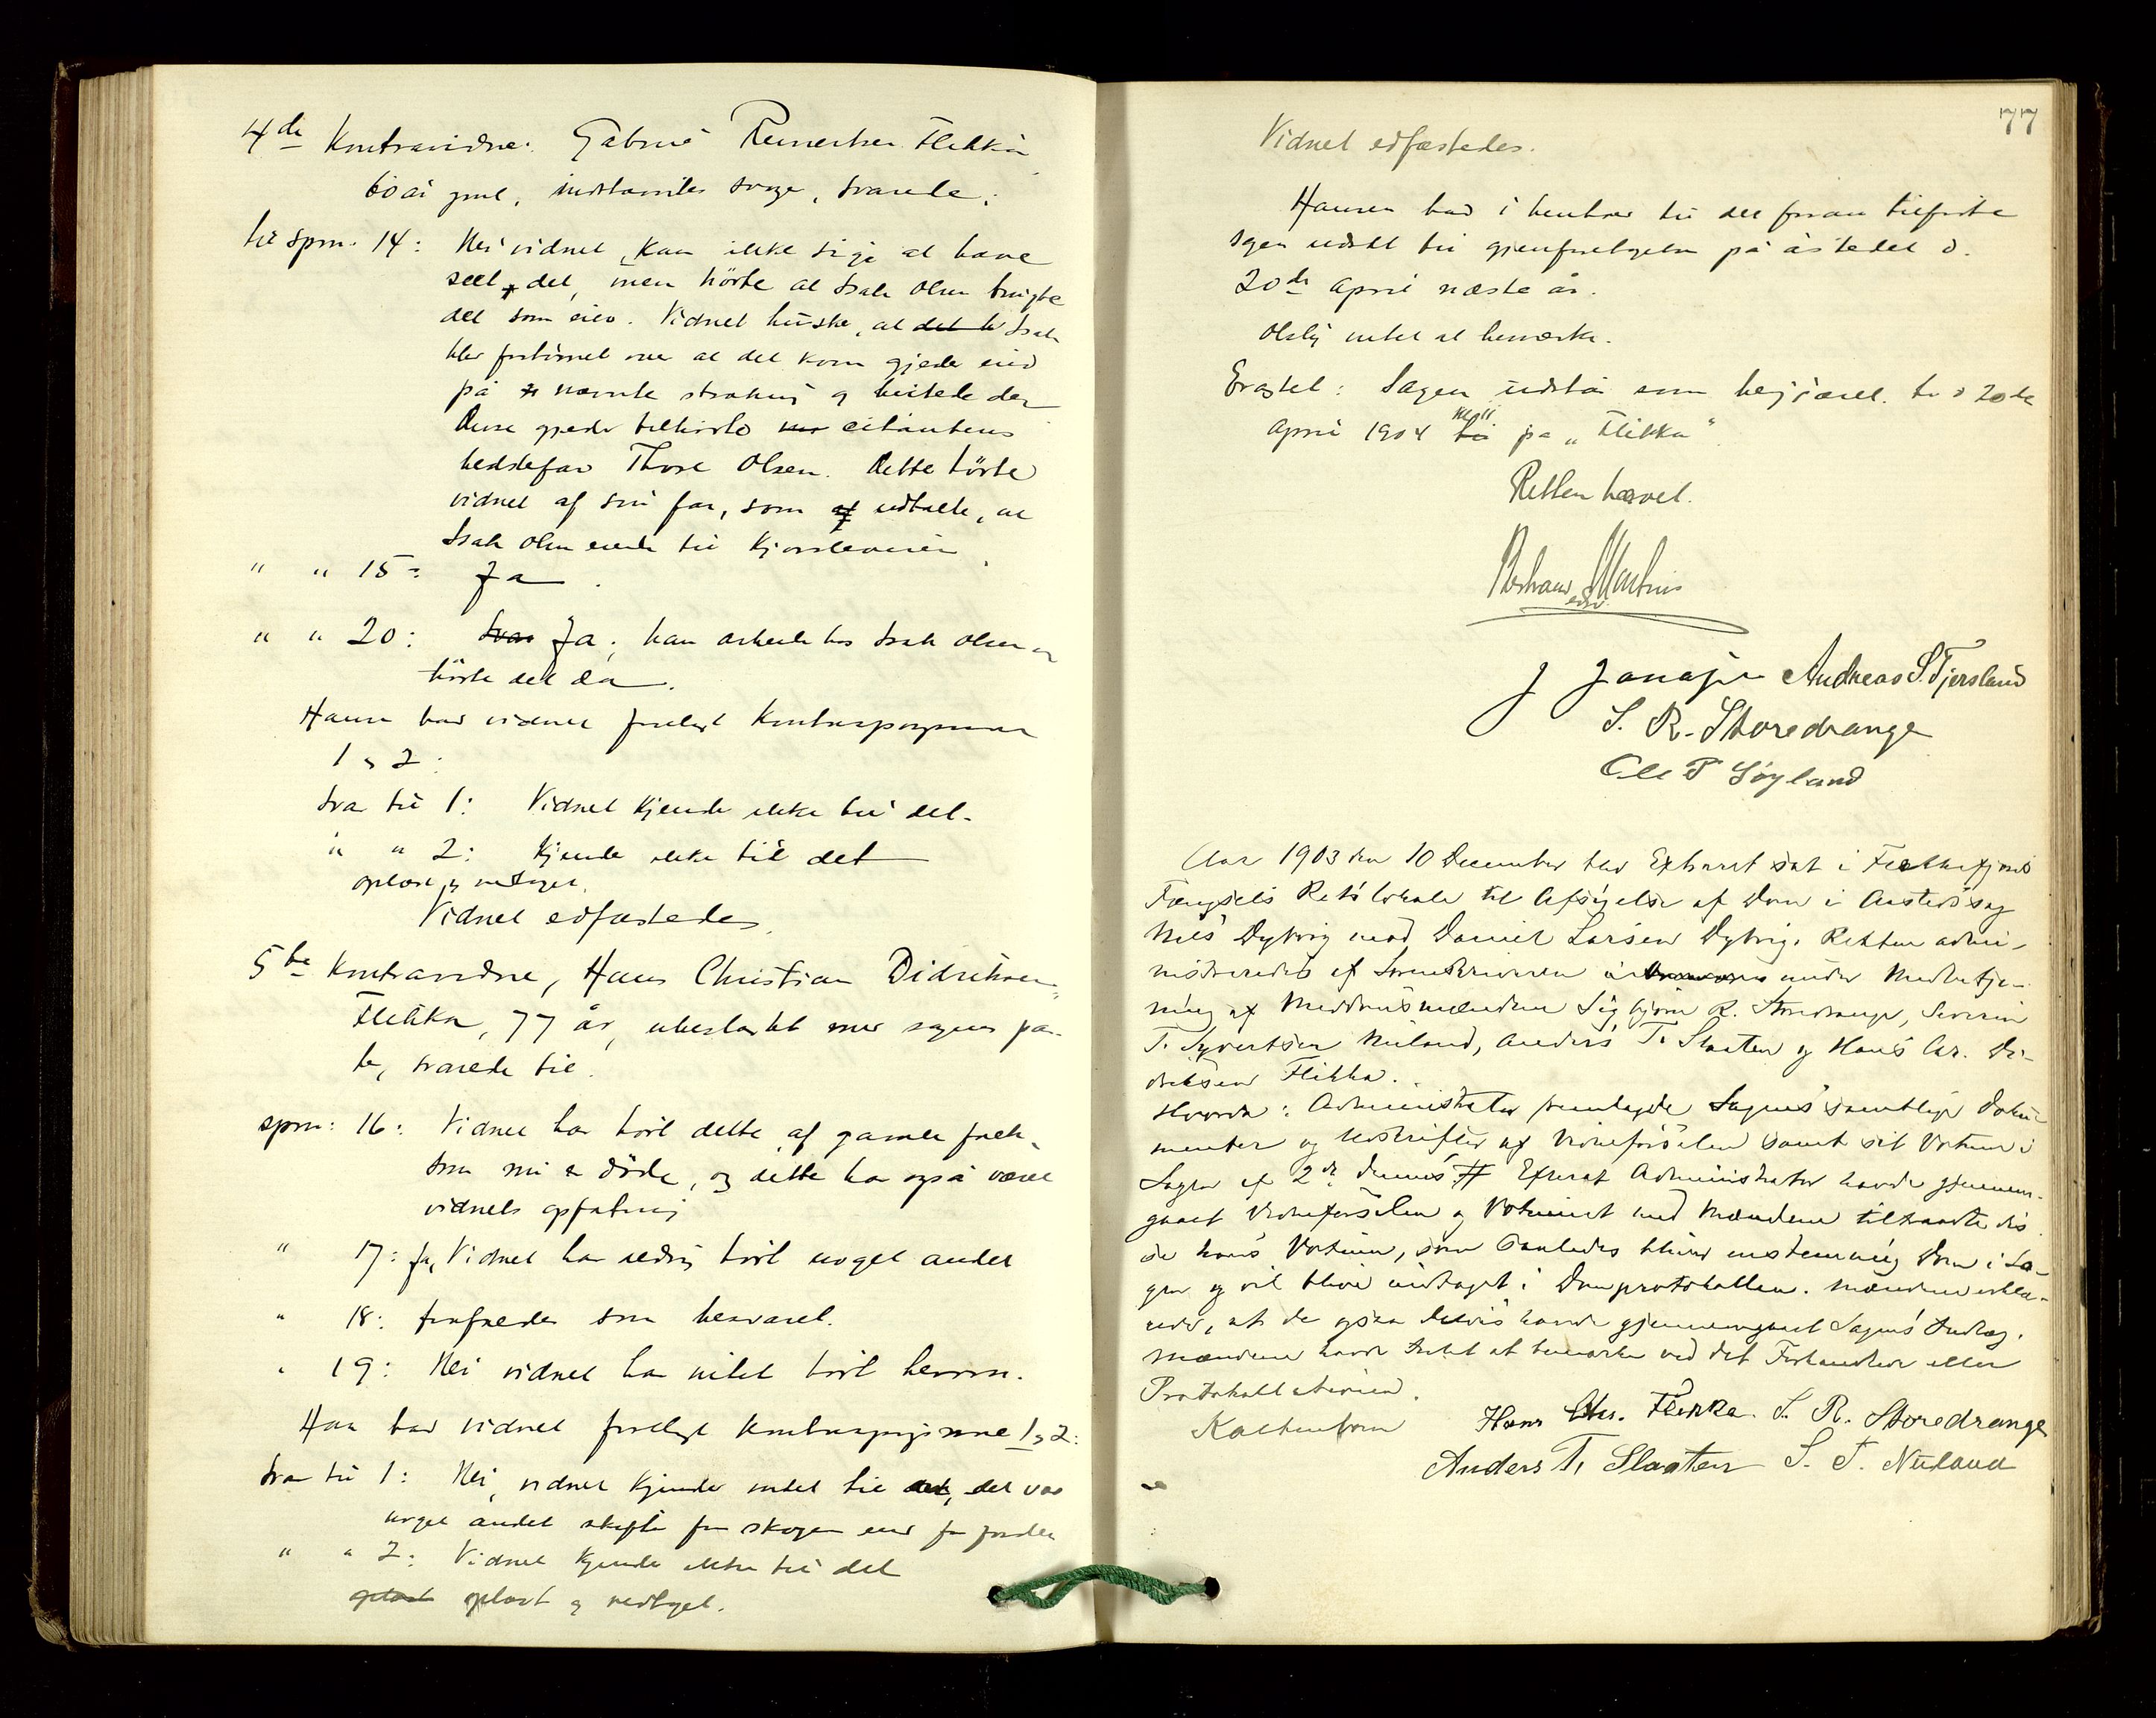 4de Kontravidne: Gabriel Reinertsen Flikka
60 år gml, indstævntes svoger, svarede:
til spm. 14: Nei vidnet kan ikke sige at have
seet det, men hörte at Isak Olsen brugte
det som eier. Vidnet husker, at det b Isak
blev fortörnet over at det kom gjeder ind
på nævnte strækning og hentede dem
Disse gjeder tilhörte citantens
bedstefar Thore Olsen. Dette hörte
vidnet af sin far, som af udtalte, at
Isak Olsen eiede til Kjørreleveien
" " 15: Ja.
" " 20: Svar Ja; han arbeidet hos Isak Olsen og
hörte det da.
Hansen bad vidnet forelagt Kontraspørgsmaal
1 & 2:
Svar til 1: Vidnet kjender ikke til det.
" " 2: Kjender ikke til det
oplæst og vedtaget.
Vidnet edfæstedes.
5te Kontravidne, Hans Christian Didriksen
Flikka, 77 år, ubeslægtet med sagens par-
ter, svarede til
spm: 16: Vidnet har hört dette af gamle folk,
som nu er döde, og dette har også været
vidnets opfatning
" 17: Ja, Vidnet har aldrig hört noget andet
" 18: frafaldes som besvaret.
" 19: Nei vidnet har intet hört herom.
Han bad vidnet forelagt kontraspørgsmaal 1 & 2:
Svar til 1: Nei, vidnet kjender intet til det, det var
noget andet skifte for skogen end for jorden
" " 2: Vidnet kjender ikke til det
oplæst oplæst og vedtaget.
77
Vidnet edfæstedes.
Hansen bad i henhold til det foran tilførte
sagen udsat til gjenforetagelse på åstedet d.
20de april næste år.
Olsby intet at bemærke.
Eragtet: Sagen udstår som begjæret til d 20de
april 1904 kl 11 på "Flikka".
Retten hævet.
J Jonassen Andreas S. Tjersland
S. R. Storedrange
Ole T Søyland
Aar 1903 den 10 December blev Extraret sat i Flekkefjords
Fængsels Retslokale til Afsigelse af Dom i Aastedssag
Nils Dybvig mod Daniel Larsen Dybvig. Retten admi-
nistreredes af Sorenskriveren under Medbetje-
ning af Meddomsmændene Sigbjörn R. Storedrange, Severin
T. Syvertsen Nuland, Anders T. Slaaten og Hans Chr. Di-
driksen Flikka.
Hvorda: Administrator fremlagde Sagens samtlige Doku-
menter og Udskrifter af Vidneførselen samt sit Votum i
Sagen af 2de dennes # Efterat Administrator havde gjennem-
gaaet Vidneførselen og Votumet med Mændene tiltraadte dis-
se hans Votum, som saaledes bliver enstemmig Dom i Sa-
gen og vil blive indtaget i Domprotokollen. Mændene erklæ-
rede, at de ogsaa delvis havde gjennemgaaet Sagens Indlæg.
Mændene havde Intet at bemærke ved det Forhandlede eller
Protokollationen.
Kaltenborn Hans Chr. Flikka. S. R. Storedrange
Anders T. Slaaten S. T. Nuland